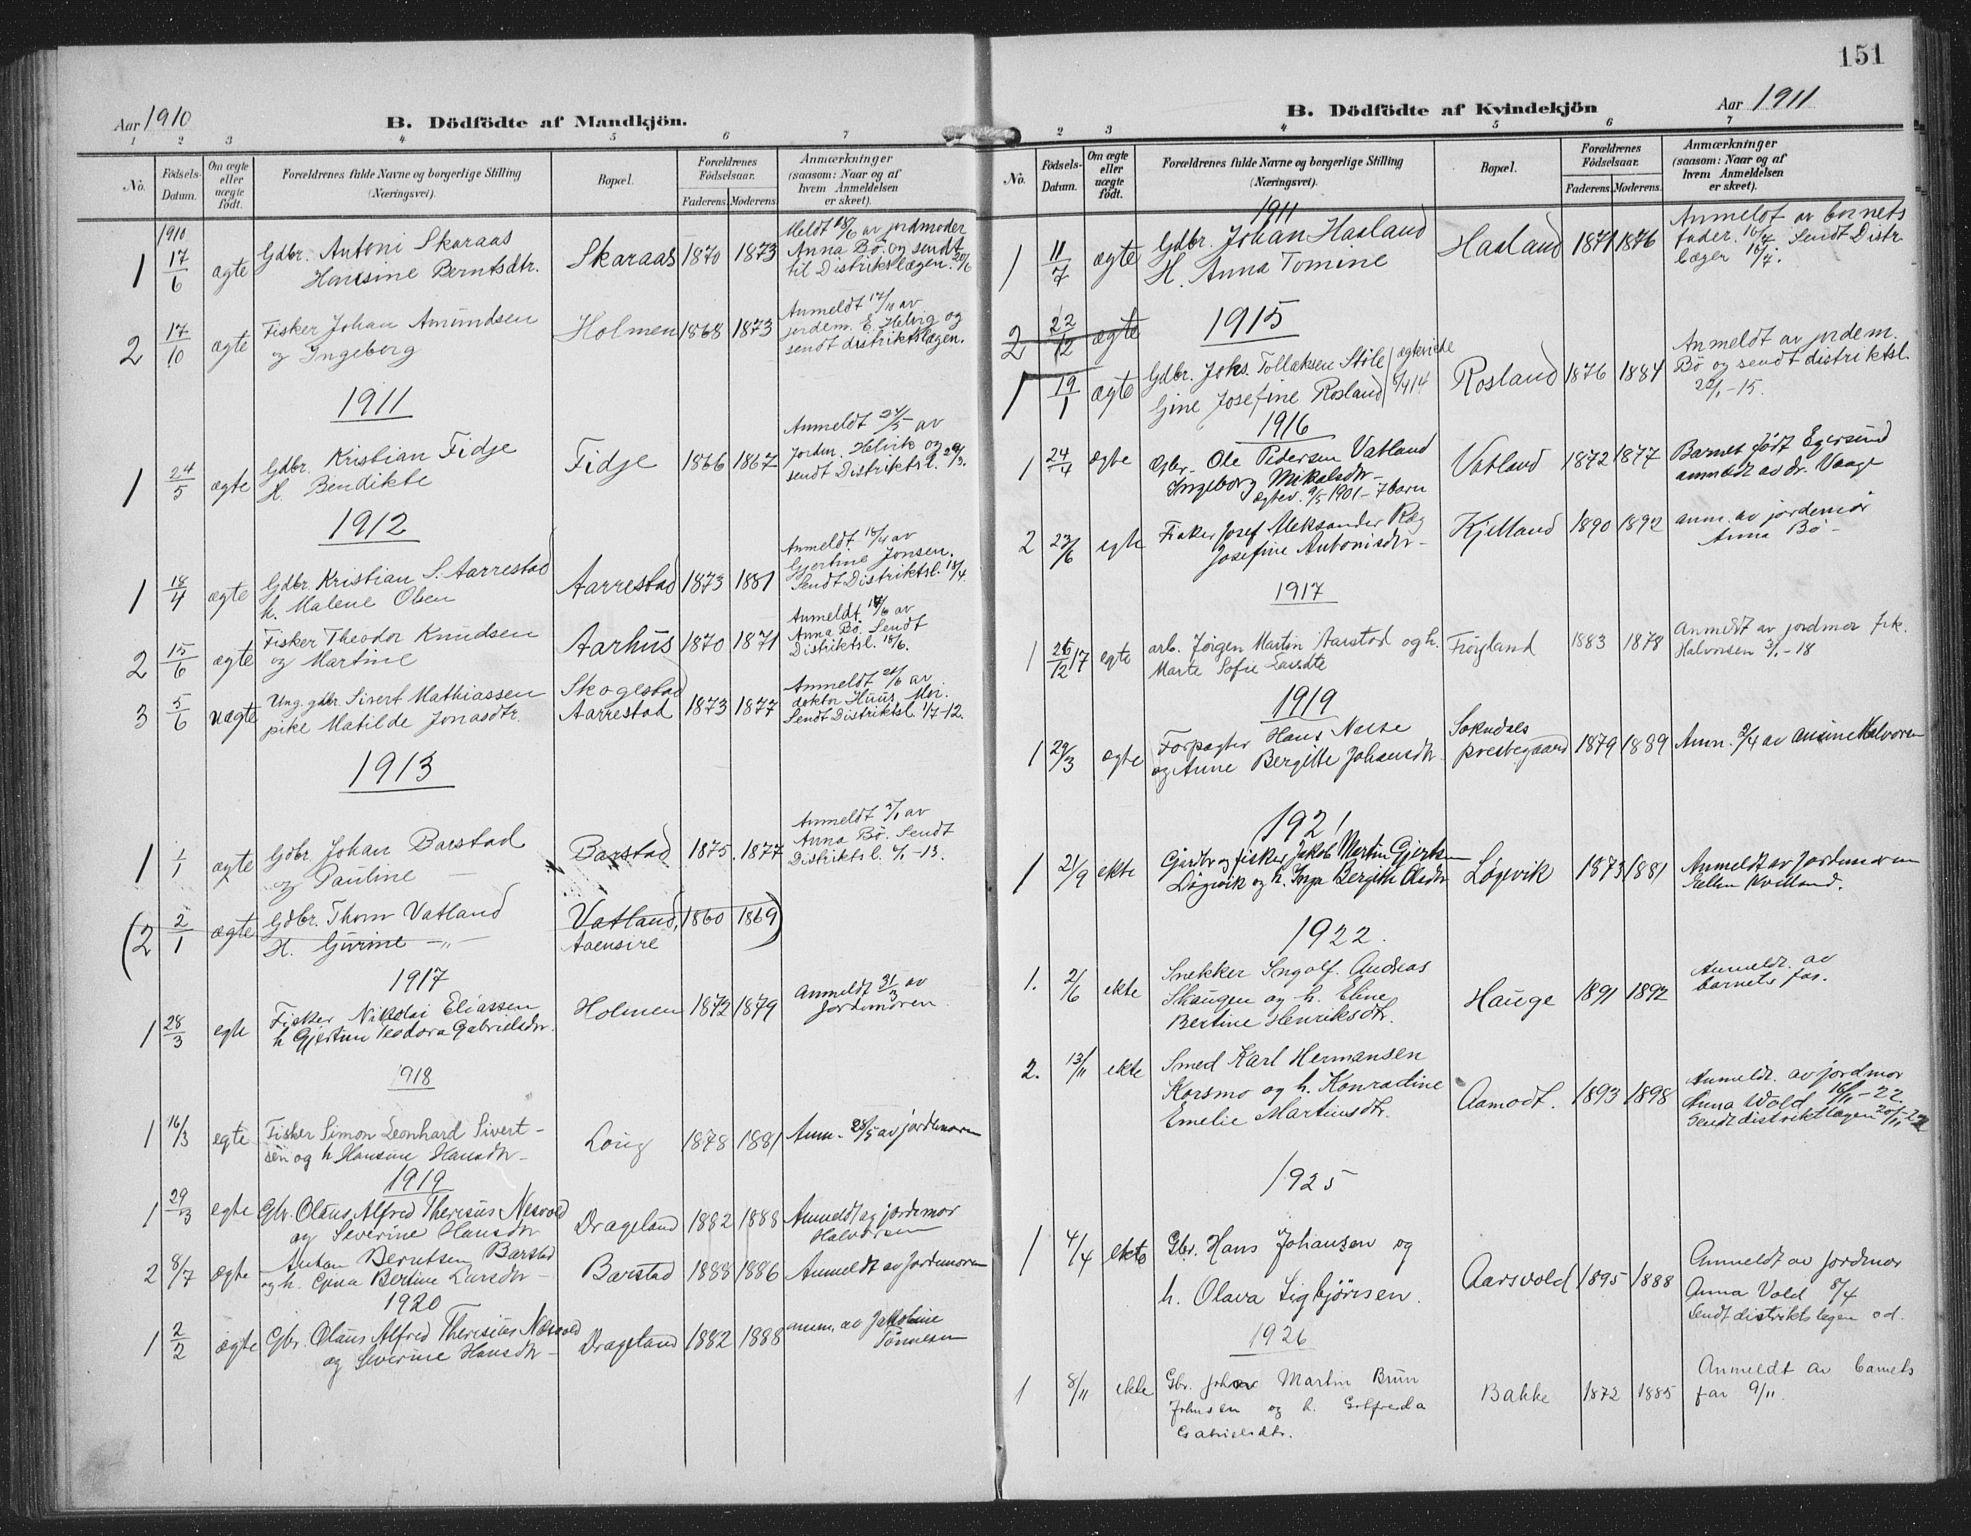 Aar 1910
B. Dödfödte af Mandkjön.
1 2 3 4 5 6 7
No.
Födsels-Datum.
Om ægte eller uægte födt.
Forældrenes fulde Navne og borgerlige Stilling (Næringsvei).
Bopæl.
Forældrenes Födselsaar.
Faderens. Moderens.
Anmærkninger (saasom: Naar og af hvem Anmeldelsen er skeet).
1910
1 17/6 ægte Gdbr. Antoni Skaraas Skaraas 1870 1873 Meldt 18/6 av jordmoder
Hansine Berntsdtr. Anna Bø og sendt
til Distriktslægen. 20/6
2 17/10 ægte Fisker Johan Amundsen Holmen 1868 1873 Anmeldt 17/11 av
og Ingeborg jordem. E. Helvig og
sendt distriktslægen.
1911
1 24/5 ægte Gdbr. Kristian Fidje Fidje 1866 1867 Anmeldt 24/5 av
H. Bendikte Jordm. Helvik og
sendt Distriktsl. 29/5.
1912
1 18/4 ægte Gdbr. Kristian S. Aarrestad Aarrestad 1873 1881 Anmeldt 18/4 av
h. Malene Olsen Gjertine Jonsen.
Sendt Distriktsl. 18/4
2 15/6 ægte Fisker Theodor Knudsen Aarhus 1870 1871 Anmeldt 18/6 av
og Martine Anna Bø. Sendt
Distriktsl. 18/6.
3 5/6 uægte Ung. gdbr. Sivert Mathiassen Skogestad 1873 1877 Anmeldt 26/6 av
pike Matilde Jonasdtr. Aarrestad doktor Huus, Moi.
Sendt Distriktsl. 1/7-12.
1913
1 1/1 ægte Gdbr. Johan Barstad Barstad 1875 1877 Anmeldt 3/1 av
og Pauline — Anna Bø. Sendt
Distriktsl. 4/1-13.
(2 2/1 ægte Gdbr. Thom Vatland Vatland, 1860 1869)
H. Gurine —„— Aaensire
1917
1 28/3 egte Fisker Nikolai Eliassen Holmen 1872 1879 Anmeldt 31/3 av
h Gjertine Teodora Gabrielsdtr. Jordmoren
1918
1 16/3 egte Fisker Simon Leonhard Sivert- 1878 1881 Anm. 28/5 av jordmoren
sen og h. Hansine Hansdtr-
1919
1 29/3 egte Gbr. Olaus Alfred Theresius Nesvold Drageland 1882 1888 Anmeldt ag jordmor
og Severine Hansdtr Halvorsen
2 8/7 ægte Anton Berntsen Barstad Barstad 1888 1886 Anmeldt av Jordmoren
og h. Bertine Larsdtr —
1920
1 2/2 ægte Gbr. Olaus Alfred Theresius Nesvold Drageland 1882 1888 anm. av Jakobine
og Severine Hansdtr — Tønnesen
151
B. Dödfödte af Kvindekjön
Aar 1911
2 3 4 5 6 7
No.
Födsels-Datum.
Om ægte eller uægte födt.
Forældrenes fulde Navne og borgerlige Stilling (Næringsvei).
Bopæl.
Forældrenes Födselsaar.
Faderens. Moderens.
Anmærkninger (saasom: Naar og af hvem Anmeldelsen er skeet).
1911
1 11/7 ægte Gdbr. Johan Hasland Hasland 1871 1876 Anmeldt av barnets
H. Anna Tomine fader. 16/7. Sendt Distr.
læger 16/7.
2 22/12 ægte
1915
1 19/1 ægte Gdbr. Johs. Tollaksen Støle | ægteviede Rosland 1876 1884 Anmeldt av jordem.
Gine Josefine Rosland | 1914 Bø og sendt distriktsl.
22/1-15.
1916
1 24/4 egte Gbr. Ole Pedersen Vatland Vatland 1872 1877 Barnet født Egersund
Ingeborg Mikalsdtr- anmeldt av dr. Vaage
ægtev. 9/5 1901 - 7 barn
2 23/6 egte Fisker Josef Aleksander Ræg Kjelland 1890 1892 anm. av jordemor
Josefine Antonisdtr- Anna Bø-
1917
1 26/12 17 egte arb. Jørgen Martin Aarstad og h. Frøyland 1883 1878 Anmeldt av jordmor frk.
Marte Sofie Halvorsen 3/1-18
1919
1 29/3 ægte Forpagter Hans Nesse Sokndals 1879 1889 Anm. 2/4 av Halvorsen
og Anne Bergitte Johansdtr. prestegaard
1921
1 21/9 ekte Gardbr og fisker Jakob Martin Gjertsen Løgevik 1873 1881 Anmeldt av Jordmoren
Løgevik og h. Inga Bergitte Olsdtr Ellen Kvelland.
1922.
1. 2/6 ekte Snekker Ingolf Andreas Hauge 1891 1892 Anmeldt. av
Skaugen og h. Eline barnets far.
Bertine Henriksdtr.
2. 13/11 ekte Smed Karl Hermansen Aamodt. 1893 1898 Anmeldt. av jordmor
Korsmo og h. Konradine Anna Wold 16/11-22.
Emelie Martinsdtr. Sendt distriktslægen 20/11-22
1925
1 4/4 ekte Gbr. Hans Johansen og Aarsvold 1895 1888 Anmeldt av jordmor
h. Olava Sigbjørnsen. Anna Vold 8/4
Sendt distriktslegen s.d.
1926
1 8/11 ekte Gbr. Johan Martin Bruun Bakke 1872 1885 Anmeldt av barnets
Johnsen og h. Golfreda far 9/11.
Gabrielsdtr.